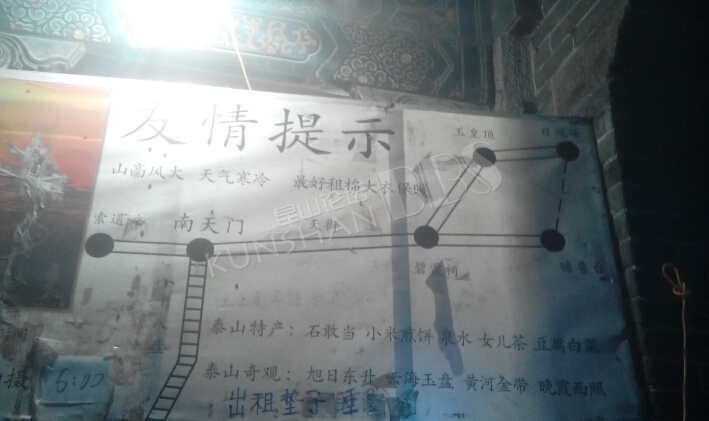 友情提示
山高风大 天气寒冷 最好租棉大衣保暖
玉皇顶
日观峰
索道站
南天门
天街
碧霞祠
瞻鲁台
十八盘
泰山特产：石敢当 小米煎饼 泉水 女儿茶 豆腐白菜
泰山奇观：旭日东升 云海玉盘 黄河金带 晚霞西照
6:00
出租垫子
KUNSHAN BBS